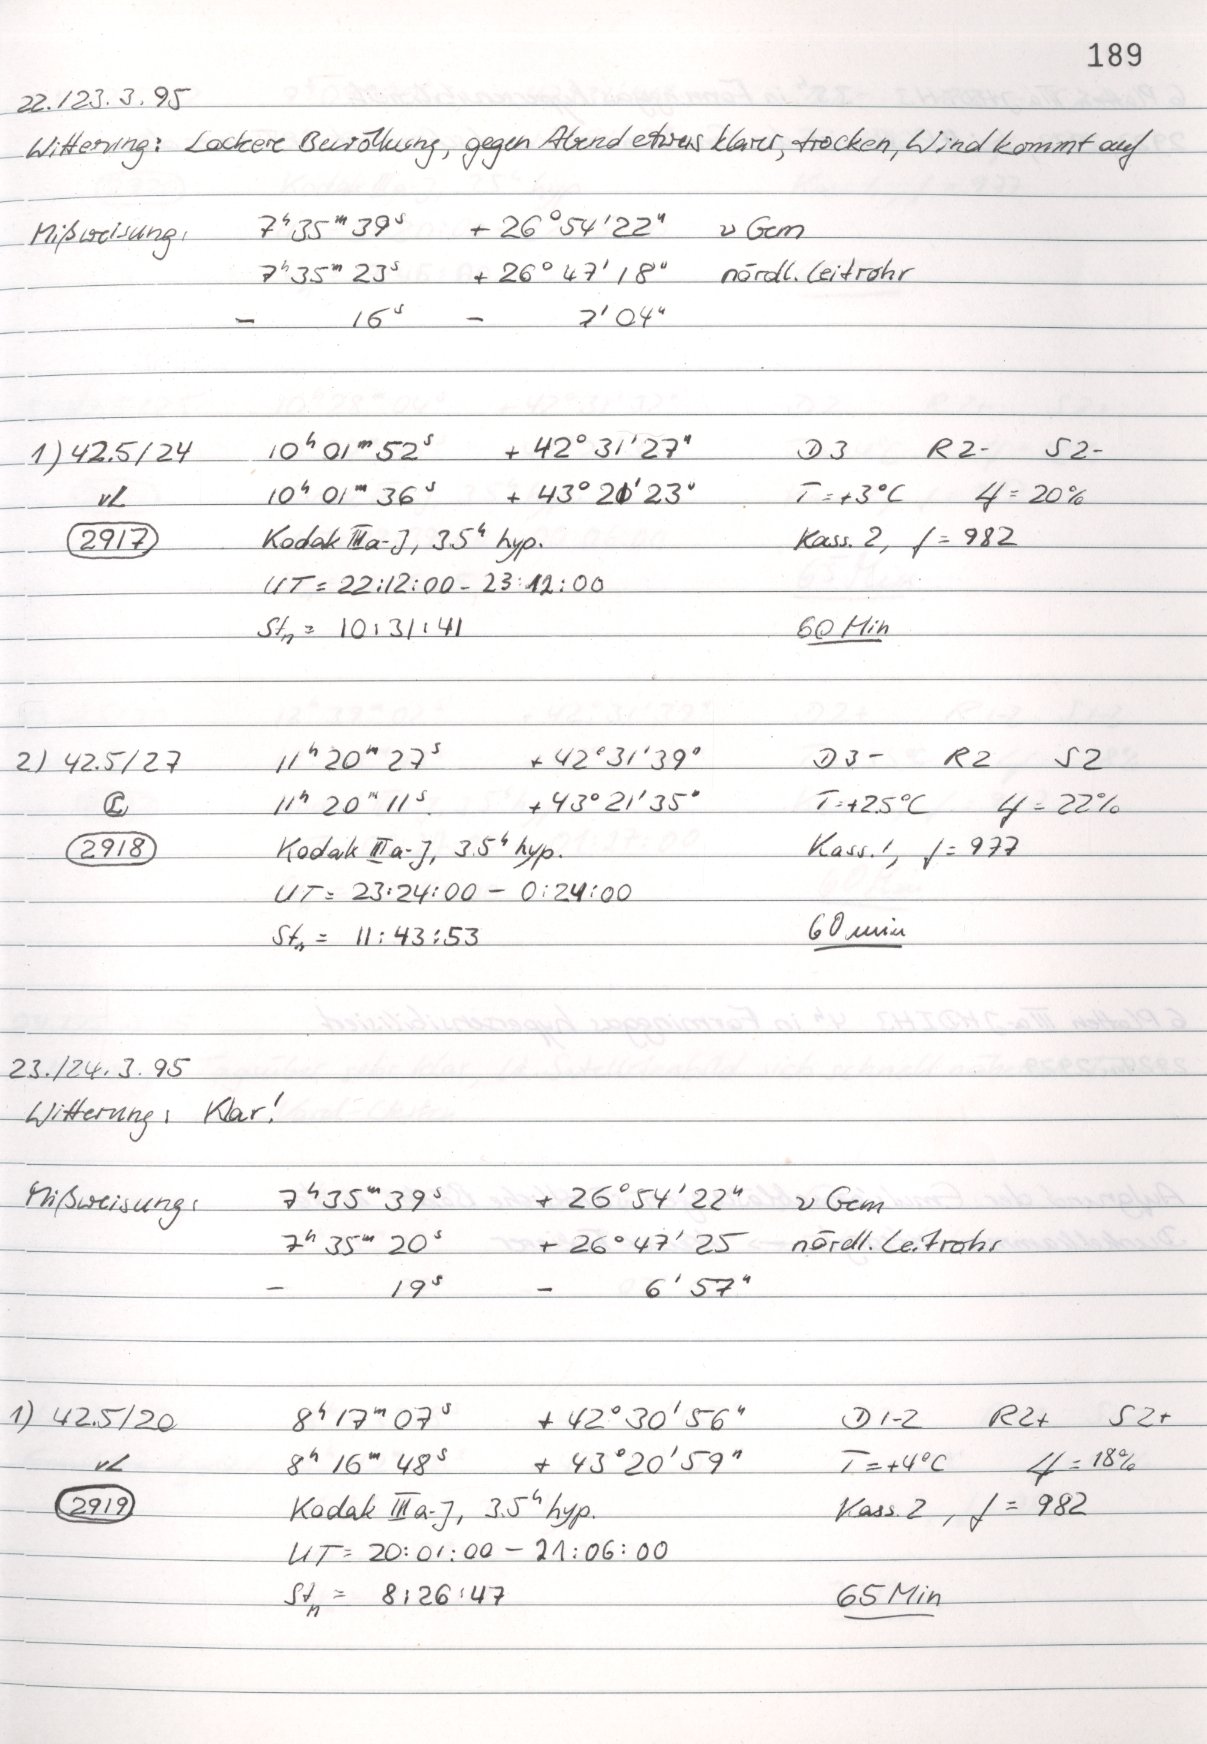 189
22./23.3.95
Witterung: Lockere Bewölkung, gegen Abend etwas klarer, trocken, Wind kommt auf
Mißweisung: 7ʰ35ᵐ39ˢ +26°54'22" υ Gem
7ʰ35ᵐ23ˢ +26°47'18" nördl. Leitrohr
- 16ˢ - 7'04"
1) 42.5/24 10ʰ01ᵐ52ˢ +42°31'27" D3 R2- S2-
vL 10ʰ01ᵐ36ˢ +43°21'23" T=+3°C φ=20%
2917 Kodak IIIa-J, 3.5ʰ hyp. Kass. 2, f=982
UT=22:12:00-23:12:00
Stₙ= 10:31:41 60 Min
2) 42.5/27 11ʰ20ᵐ27ˢ +42°31'39" D3- R2 S2
11ʰ20ᵐ11ˢ +43°21'35" T=+2.5°C φ=22%
2918 Kodak IIIa-J, 3.5ʰ hyp. Kass. 1, f=977
UT=23:24:00-0:24:00
Stₙ= 11:43:53 60 min
23./24.3.95
Witterung: Klar!
Mißweisung: 7ʰ35ᵐ39ˢ +26°54'22" υ Gem
7ʰ35ᵐ20ˢ +26°47'25 nördl. Leitrohr
- 19ˢ - 6'57"
1) 42.5/20 8ʰ17ᵐ07ˢ +42°30'56" D1-2 R2+ S2+
vL 8ʰ16ᵐ48ˢ +43°20'59" T=+4°C φ=18%
2919 Kodak IIIa-J, 3.5ʰ hyp. Kass. 2, f=982
UT=20:01:00-21:06:00
Stₙ= 8:26:47 65 Min